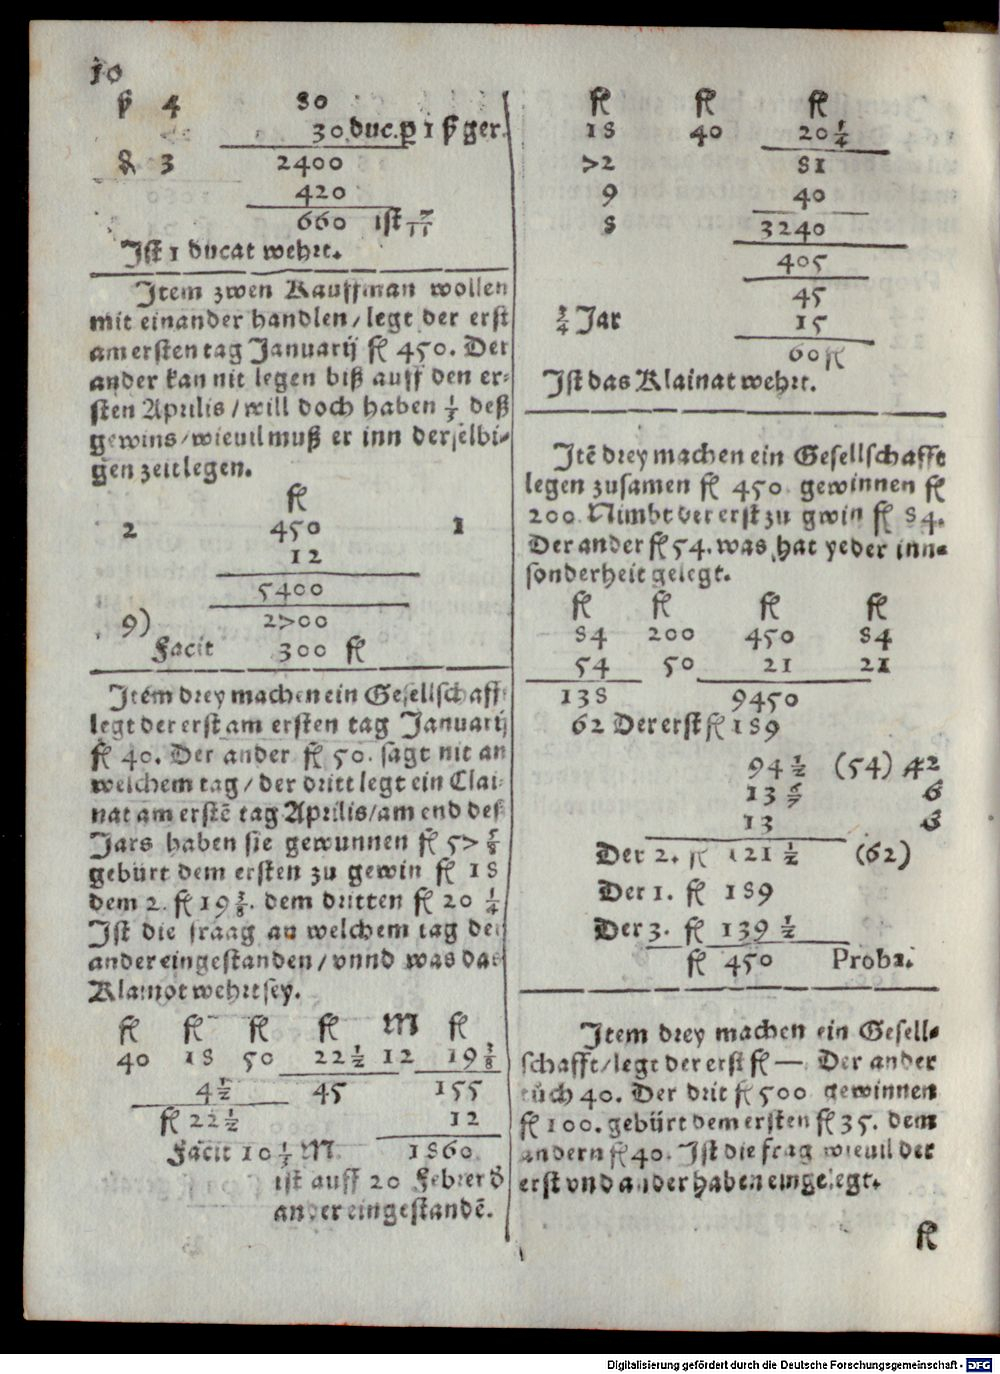 10
ꝑ 4 80
30 duc. ꝑ 1 ꝑ ger.
& 3 2400
420
660 ist 7/11
Jst 1 ducat wehrt.
Jtem zwen Kauffman wollen
mit einander handlen/legt der erst
am ersten tag Januarij fl 450. Der
ander kan nit legen biß auff den er⸗
sten Aprilis/will doch haben 1/3 deß
gewins/wieuil muß er inn derselbi⸗
gen zeit legen.
fl
2 450 1
12
5400
9) 2700
Facit 300 fl
Jtem drey machen ein Gesellschafft
legt der erst am ersten tag Januarij
fl 40. Der ander fl 50. sagt nit an
welchem tag/der dritt legt ein Clai⸗
nat am erstē tag Aprilis/am end deß
Jars haben sie gewunnen fl 57 5/8
gebürt dem ersten zu gewin fl 18
dem 2. fl 19 3/8. dem dritten fl 20 1/4
Jst die fraag an welchem tag der
ander eingestanden/vnnd was das
Klainot wehrt sey.
fl fl fl fl M fl
40 18 50 22 1/2 12 19 3/8
4 1/2 45 155
fl 22 1/2 12
Facit 10 1/3 M. 1860
ist auff 20 Febrer d̄
ander eingestandē.
fl fl fl
18 40 20 1/4
72 81
9 40
8 3240
405
45
3/4 Jar 15
60 fl
Jst das Klainat wehrt.
Jtē drey machen ein Gesellschafft
legen zusamen fl 450. gewinnen fl
200. Nimbt der erst zu gwin fl 84.
Der ander fl 54. was hat yeder inn⸗
sonderheit gelegt.
fl fl fl fl
84 200 450 84
54 50 21 21
138 9450
62 Der erst fl 189
94 1/2 (54) 42
13 6/7 6
13 6
Der 2. fl 121 1/2 (62)
Der 1. fl 189
Der 3. fl 139 1/2
fl 450 Proba.
Jtem drey machen ein Gesell⸗
schafft/legt der erst fl —. Der ander
tůch 40. Der drit fl 500 gewinnen
fl 100. gebürt dem ersten fl 35. dem
andern fl 40. Jst die frag wieuil der
erst vnd ander haben eingelegt.
fl
Digitalisierung gefördert durch die Deutsche Forschungsgemeinschaft - DFG